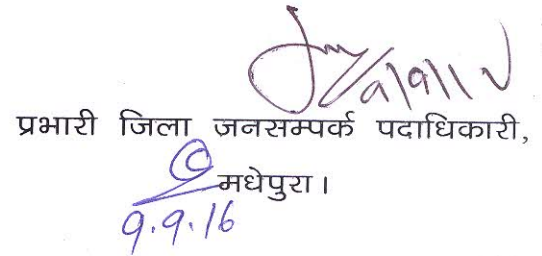 प्रभारी जिला जनसम्पर्क पदाधिकारी,
मधेपुरा।
9.9.16